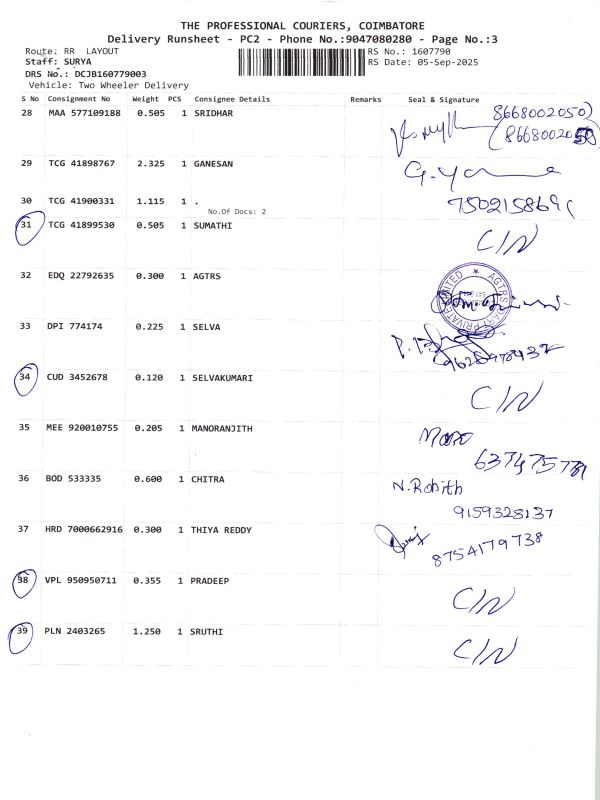 THE PROFESSIONAL COURIERS, COIMBATORE
Delivery Runsheet - PC2 - Phone No.:9047080280 - Page No.:3
Route: RR LAYOUT
RS No.: 1607790
Staff: SURYA
RS Date: 05-Sep-2025
DRS No.: DCJB160779003
Vehicle: Two Wheeler Delivery
S No Consignment No Weight PCS Consignee Details Remarks Seal & Signature
28 MAA 577109188 0.505 1 SRIDHAR 8668002050)
(8668002050
29 TCG 41898767 2.325 1 GANESAN
30 TCG 41900331 1.115 1 .
No.Of Docs: 2
31 TCG 41899530 0.505 1 SUMATHI C/N
32 EDQ 22792635 0.300 1 AGTRS
33 DPI 774174 0.225 1 SELVA
34 CUD 3452678 0.120 1 SELVAKUMARI C/N
35 MEE 920010755 0.205 1 MANORANJITH Mano
36 BOD 533335 0.600 1 CHITRA N. Rohith
9159328137
37 HRD 7000662916 0.300 1 THIYA REDDY
8754179738
38 VPL 950950711 0.355 1 PRADEEP C/N
39 PLN 2403265 1.250 1 SRUTHI C/N